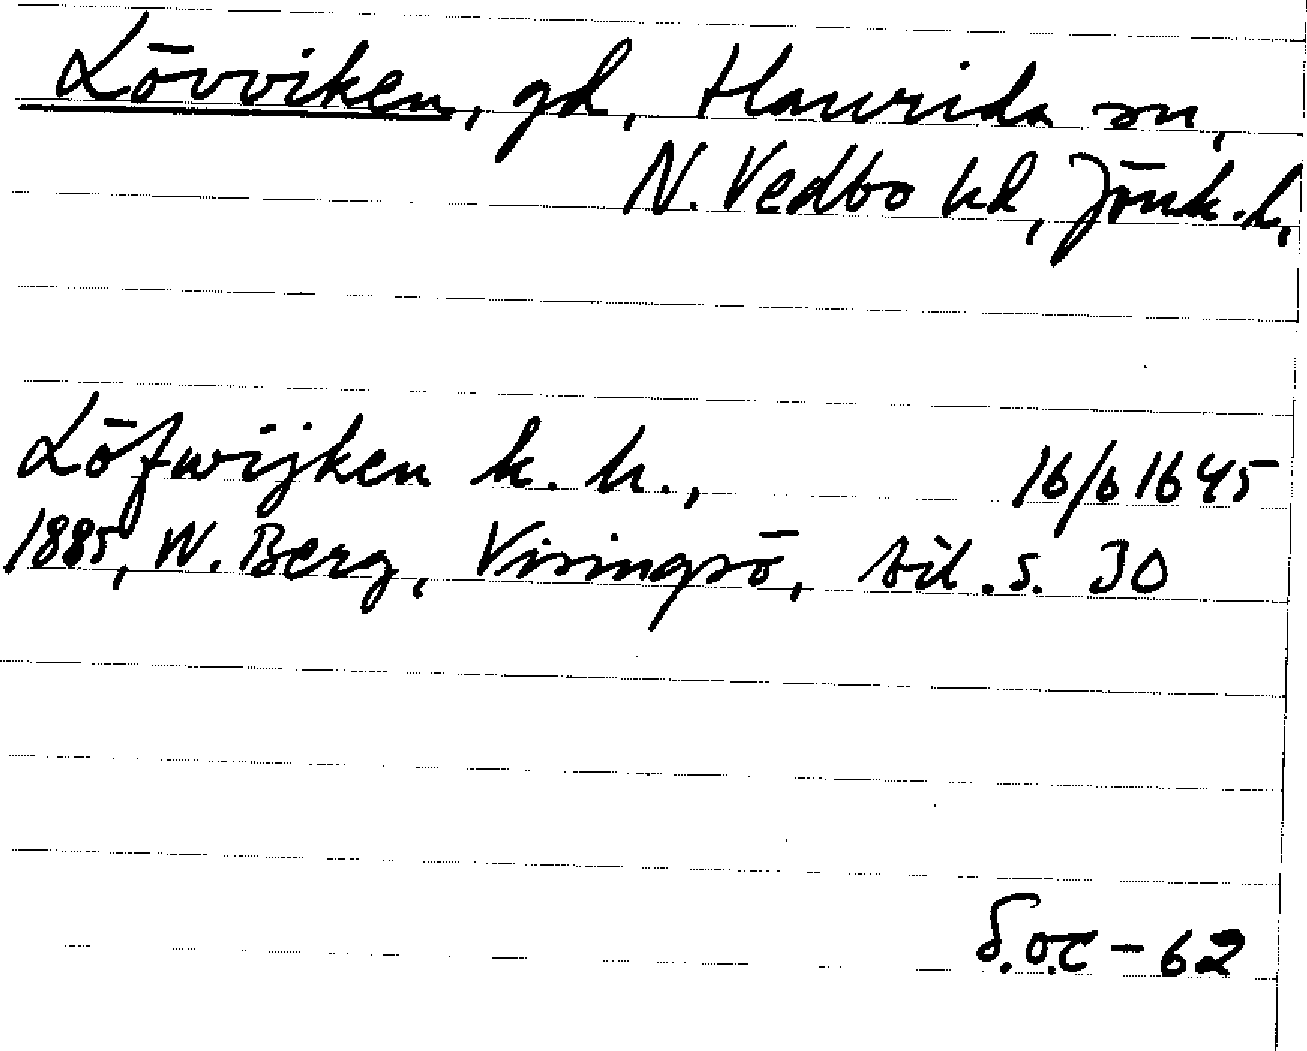 Lövviken, gd, Haurida sn,
N. Vedbo hd, Jönk. l,
Löfwijken k. h., 16/6 1645
1885, W. Berg, Visingsö, bil. s. 30
S.O.C - 62